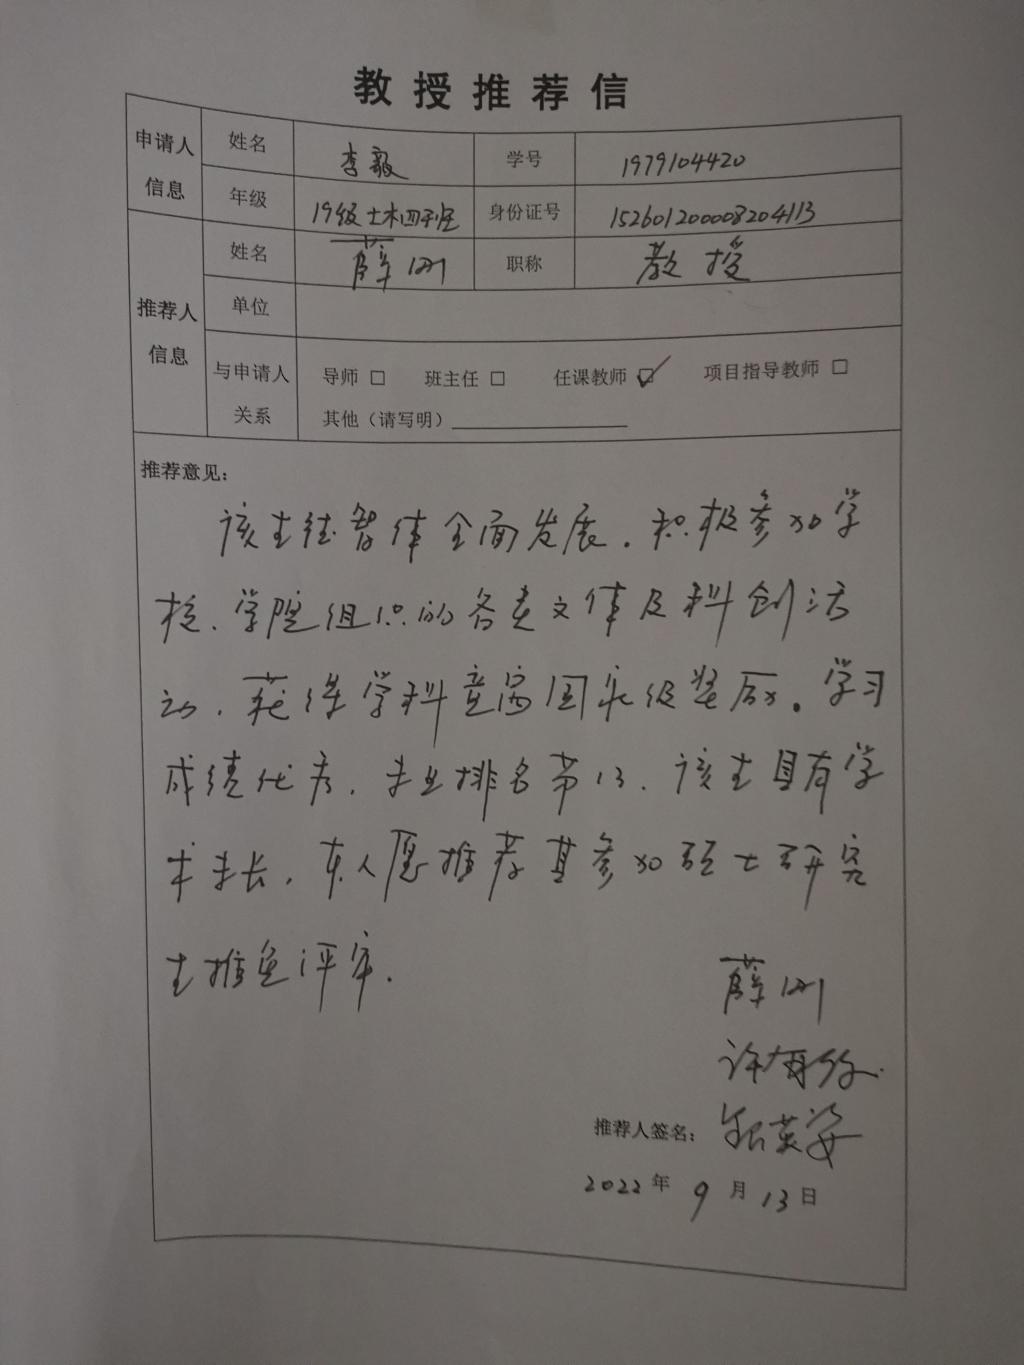 教授推荐信
申请人信息 姓名 李毅 学号 1979104420
年级 19级土木四班 身份证号 152601200008204113
推荐人信息 姓名 薛刚 职称 教授
单位
与申请人关系 导师 □ 班主任 □ 任课教师 ☑ 项目指导教师 □
其他（请写明）
推荐意见：
该生德智体全面发展。积极参加学
校、学院组织的各类文体及科创活
动，获得学科竞赛国家级奖励。学习
成绩优秀，专业排名第13，该生具有学
术专长，本人愿推荐其参加硕士研究
生推免评审.
薛刚
推荐人签名：
2022 年 9 月 13 日